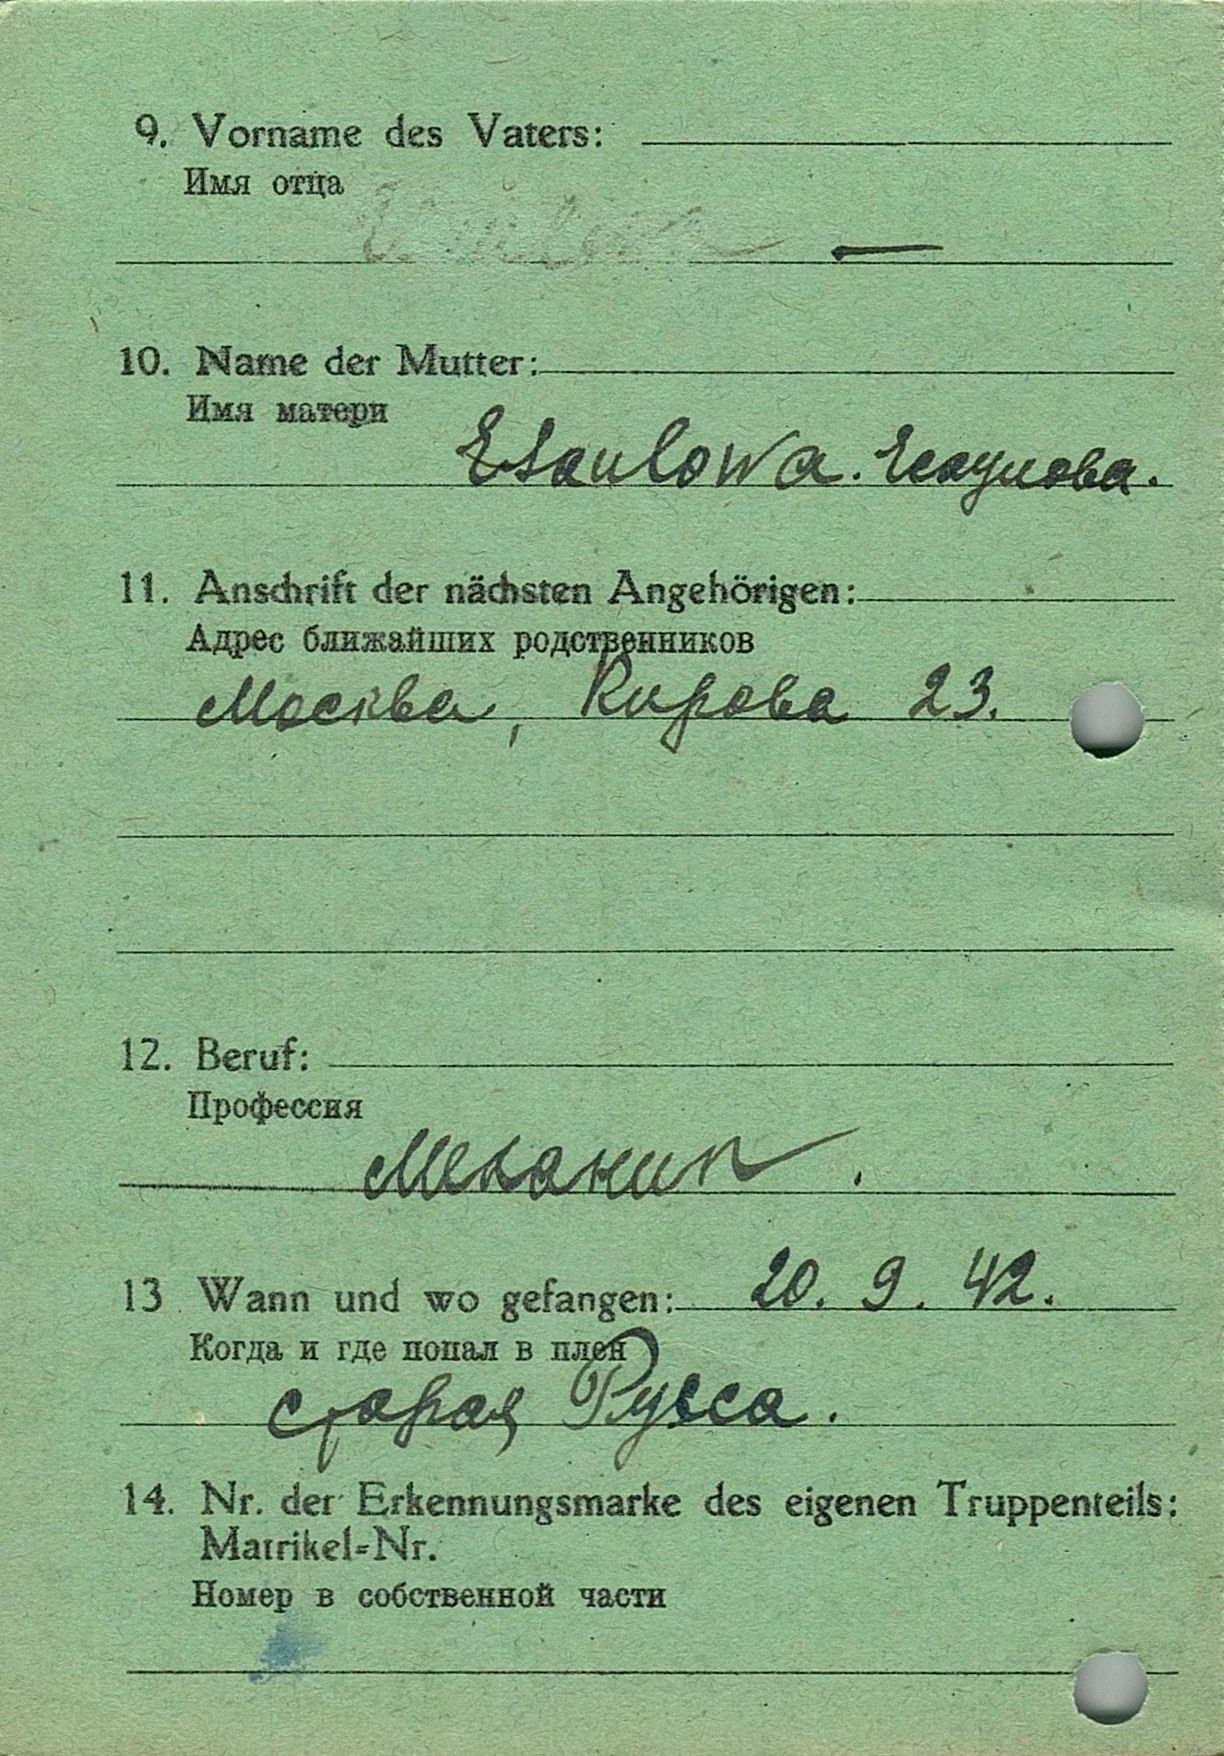 9. Vorname des Vaters:
Имя отца
—
10. Name der Mutter:
Имя матери
Esaulowa. Есаулова.
11. Anschrift der nächsten Angehörigen:
Адрес ближайших родственников
Москва, Кирова 23.
12. Beruf:
Профессия
Механик.
13 Wann und wo gefangen: 20. 9. 42.
Когда и где попал в плен
старая Русса.
14. Nr. der Erkennungsmarke des eigenen Truppenteils:
Matrikel-Nr.
Номер в собственной части